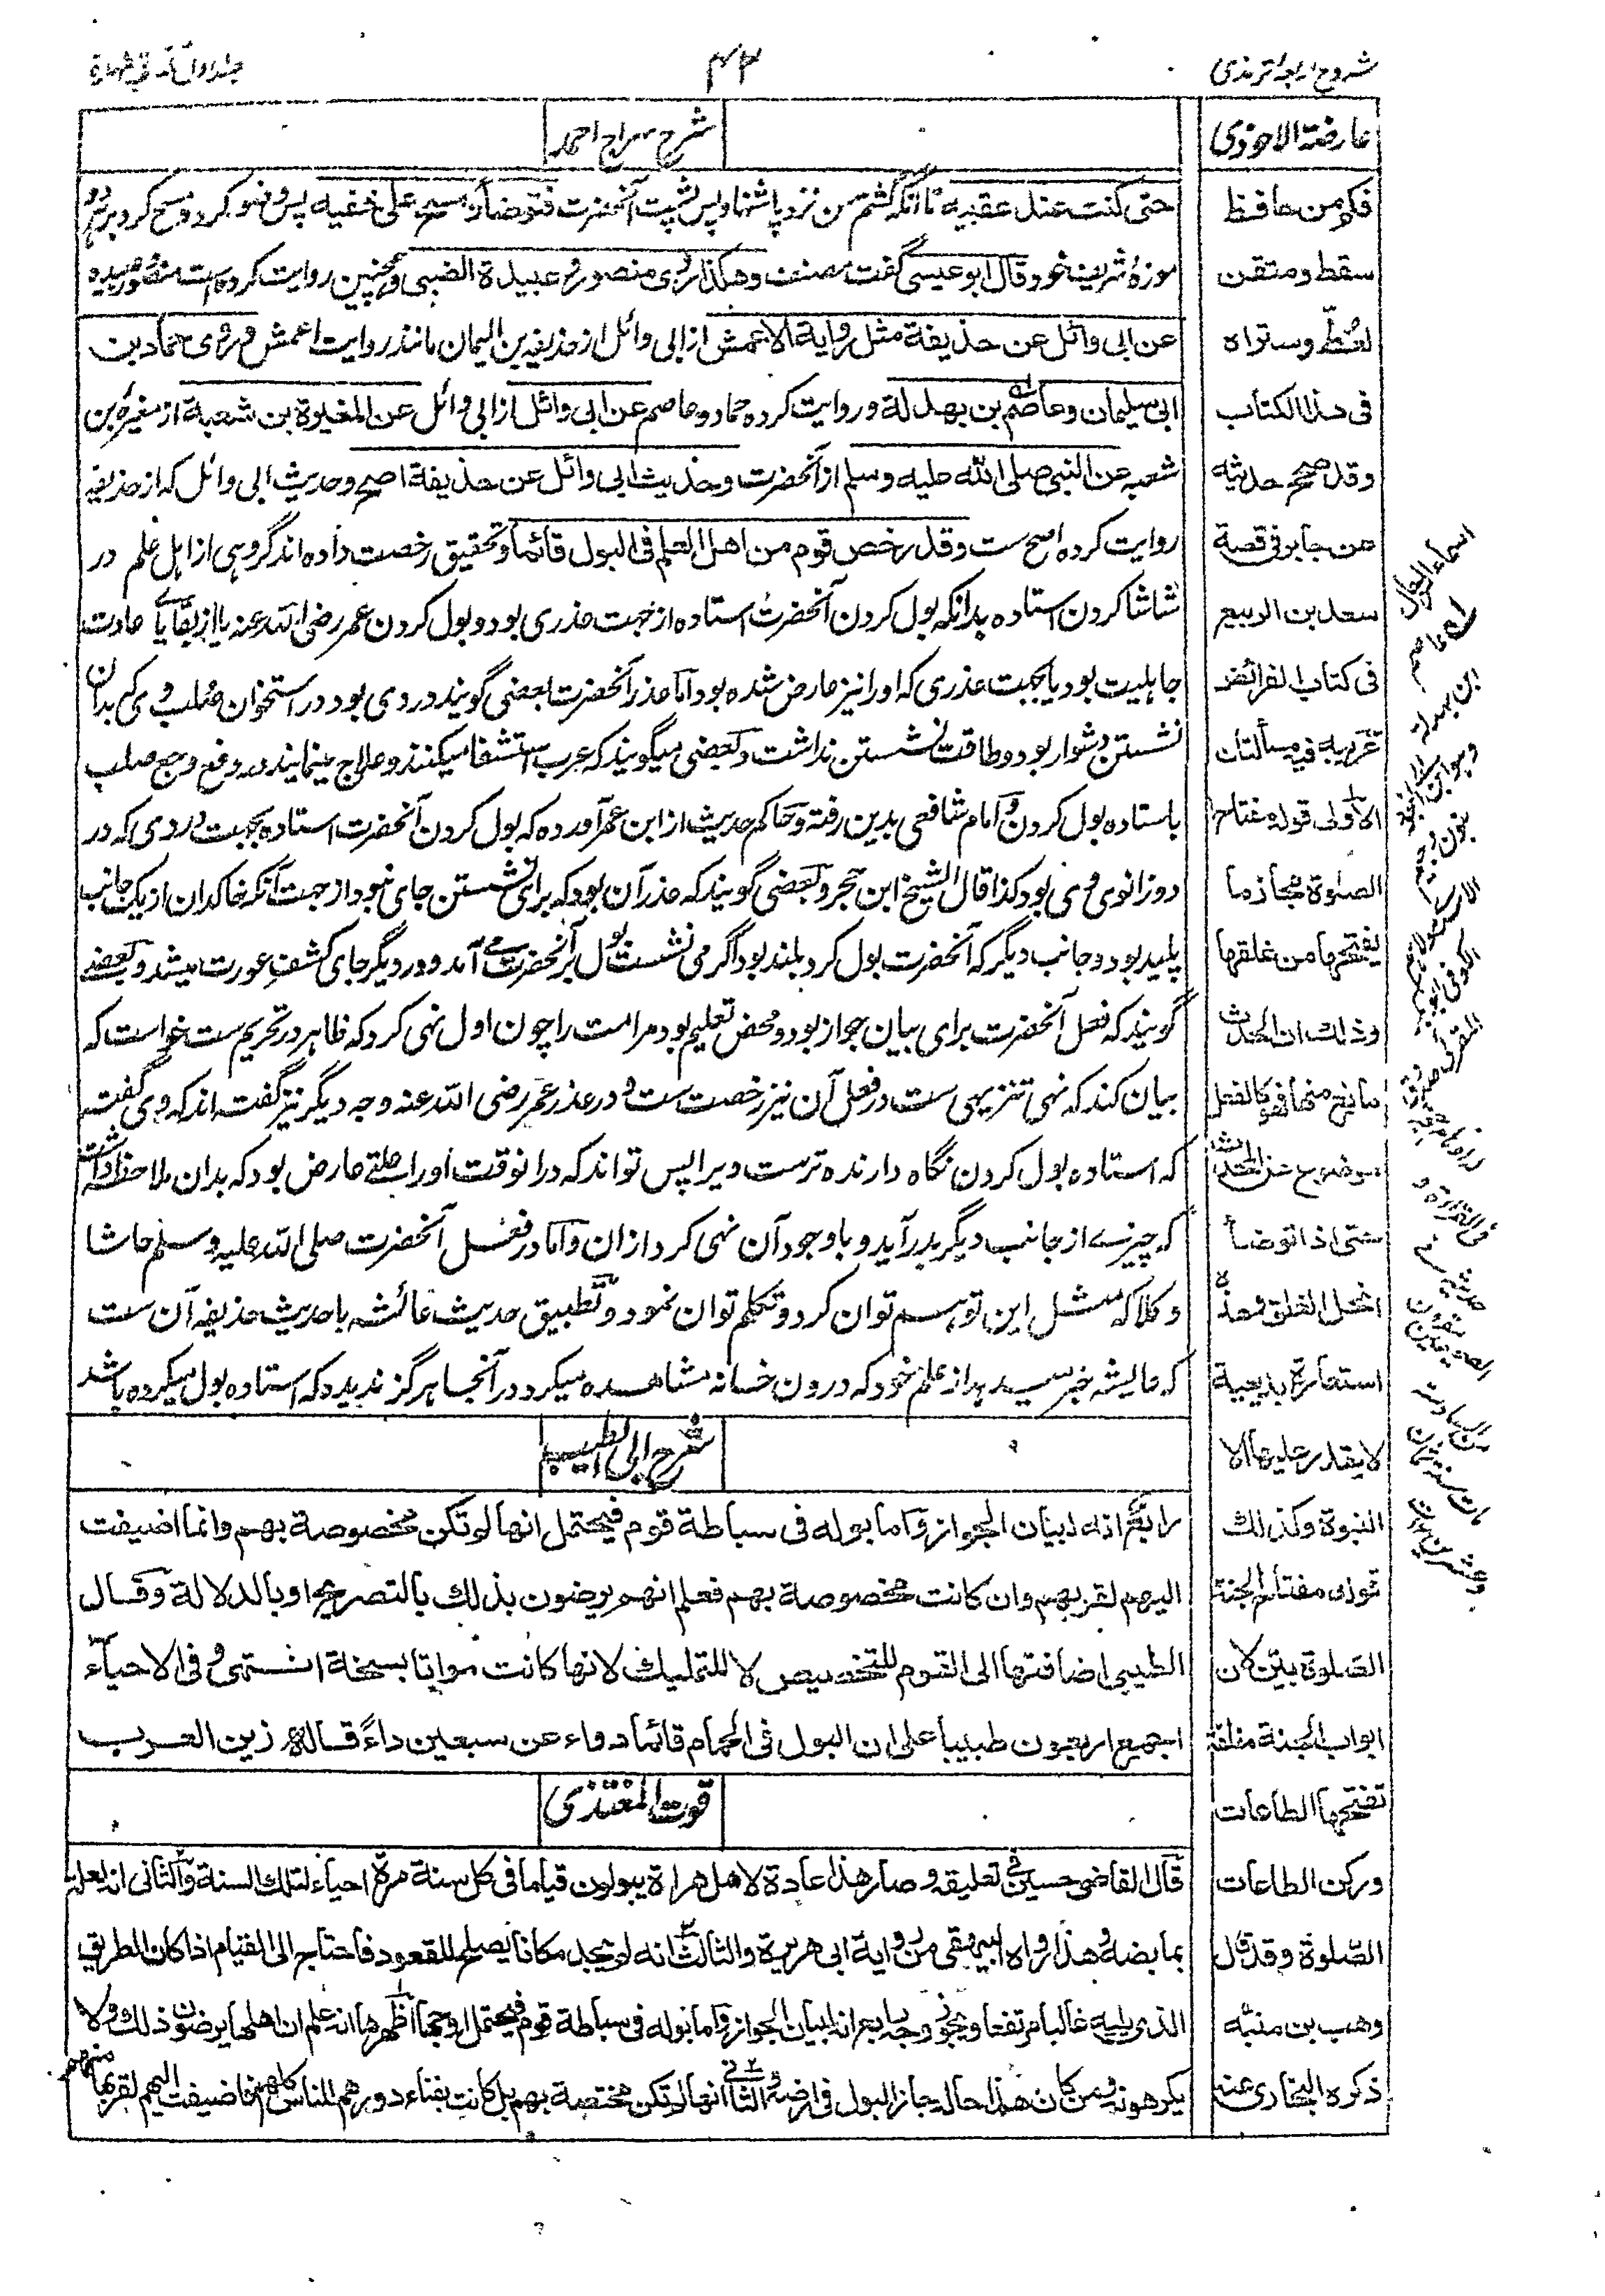 شروح اربعه ترمذی
۴۲
جلد اول
عارضة الاحوذی
فکم من حافظ
سقط ومتقن
لغلط وستراه
فی هذا الکتاب
وقد صحح حدیثه
عن جابر فی قصة
سعد بن الربیع
فی کتاب الفرائض
غریبه فیه مسألتان
الاولی قوله مفتاح
الصلوة مجاز ما
یفتحها من غلقها
وذلک ان الحدث
مانع منها فهو کالقفل
موضوع علی المحدث
حتی اذا توضأ
انحل الغلق وهذه
استعارة بدیعیة
لا یقدر علیها الا
النبوة وکذلک
قوله مفتاح الجنة
الصلوة بین لان
ابواب الجنة مغلقة
تفتحها الطاعات
ورکن الطاعات
الصلوة وقد قال
وهب بن منبه
ذکره البخاری عنه
شرح سراج احمد
حتی کنت عند عقبیه تا آنکه گشتم من نزد پاشنها و پس پشت آنحضرت فتوضأ ومسح علی خفیه پس وضو کرد و مسح کرد بر هر دو
موزهٔ شریفه خود وقال ابو عیسی گفت مصنف وهکذا روی منصور وعبیدة الضبی وهمچنین روایت کرده است منصور وعبیده
عن ابی وائل عن حذیفة مثل روایة الاعمش از ابی وائل از حذیفه بن الیمان مانند روایت اعمش وروی حماد بن
ابی سلیمان وعاصم بن بهدلة و روایت کرده حماد و عاصم عن ابی وائل از ابی وائل عن المغیرة بن شعبة از مغیره بن
شعبه عن النبی صلی الله علیه وسلم از آنحضرت وحدیث ابی وائل عن حذیفة اصح وحدیث ابی وائل که از حذیفه
روایت کرده اصح ست وقد رخص قوم من اهل العلم فی البول قائما وتحقیق رخصت داده اند گروهی از اهل علم در
شاشا کردن استاده بدانکه بول کردن آنحضرت استاده از جهت عذری بود و بول کردن عمر رضی الله عنه یا از بقایای عادت
جاهلیت بود یا بجهت عذری که او را نیز عارض شده بود اما عذر آنحضرت بعضی گویند دردی بود در استخوان صلب وی که بدان
نشستن دشوار بوده و طاقت نشستن نداشت و بعضی میگویند که عرب استشفا میکنند و علاج مینمایند در دفع وجع صلب
باستاده بول کردن و امام شافعی بدین رفته و حاکم حدیث از ابن عمر آورده که بول کردن آنحضرت استاده بجهت دردی که در
دو زانوی وی بود کذا قال الشیخ ابن حجر و بعضی گویند که عذر آن بود که برای نشستن جای نبود از جهت آنکه خاکدان از یک جانب
پلید بود و جانب دیگر که آنحضرت بول کرد بلند بود اگر می نشست بول بر آنحضرت می آمد و در دیگر جای کشف عورت میشد و بعضی
گویند که فعل آنحضرت برای بیان جواز بود و محض تعلیم بود مر امت را چون اول نهی کرد که ظاهر در تحریم ست خواست که
بیان کند که نهی تنزیهی ست در فعل آن نیز رخصت ست و در عذر عمر رضی الله عنه وجه دیگر نیز گفته اند که وی گفت
که استاده بول کردن نگاه دارنده ترست دبر را پس تواند که در آنوقت او را علتی عارض بود که بدان ملاحظه داشت
که چیزے از جانب دیگر بدر آید و باوجود آن نهی کرد از ان واما در فعل آنحضرت صلی الله علیه وسلم حاشا
وکلا که مثل این توهم توان کرد و تکلم توان نمود و تطبیق حدیث عائشه با حدیث حذیفه آن ست
که عایشه خبر میدهد از علم خود که درون خانه مشاهده میکرد در آنجا هرگز ندیده که استاده بول میکرده باشد
شرح ابی الطیب
رابعها انه لبیان الجواز واما بوله فی سباطة قوم فیحتمل انها لم تکن مخصوصة بهم وانما اضیفت
الیهم لقربهم وان کانت مخصوصة بهم فعلم انهم یرضون بذلک بالتصریح او بالدلالة وقال
الطیبی اضافتها الی القوم للتخصیص لا للتملیک لانها کانت مواتا بسخة انتهی وفی الاحیاء
اجمع اربعون طبیبا علی ان البول فی الحمام قائما دواء عن سبعین داءً قاله زین العرب
قوت المغتذی
قال القاضی حسین فی تعلیقه وصار هذا عادة لاهل هراة یبولون قیاما فی کل سنة مرة احیاء لتلک السنة والثانی انه لعلة
بمأبضه وهذا رواه البیهقی من روایة ابی هریرة والثالث انه لم یجد مکانا یصلح للقعود فاحتاج الی القیام اذا کان الطریق
الذی یلیه غالبا مرتفعا ویجوز وجه رابع انه لبیان الجواز واما بوله فی سباطة قوم فیحتمل اوجها اظهرها انه علم ان اهلها یرضون ذلک ولا
یکرهونه ومن کان هذا حاله جاز البول فی ارضه والثانی انها لم تکن مختصة بهم بل کانت بفناء دورهم للناس کلهم فاضیفت الیهم لقربها منهم
اسماء الرجال
له عاصم
ابن بهدلة